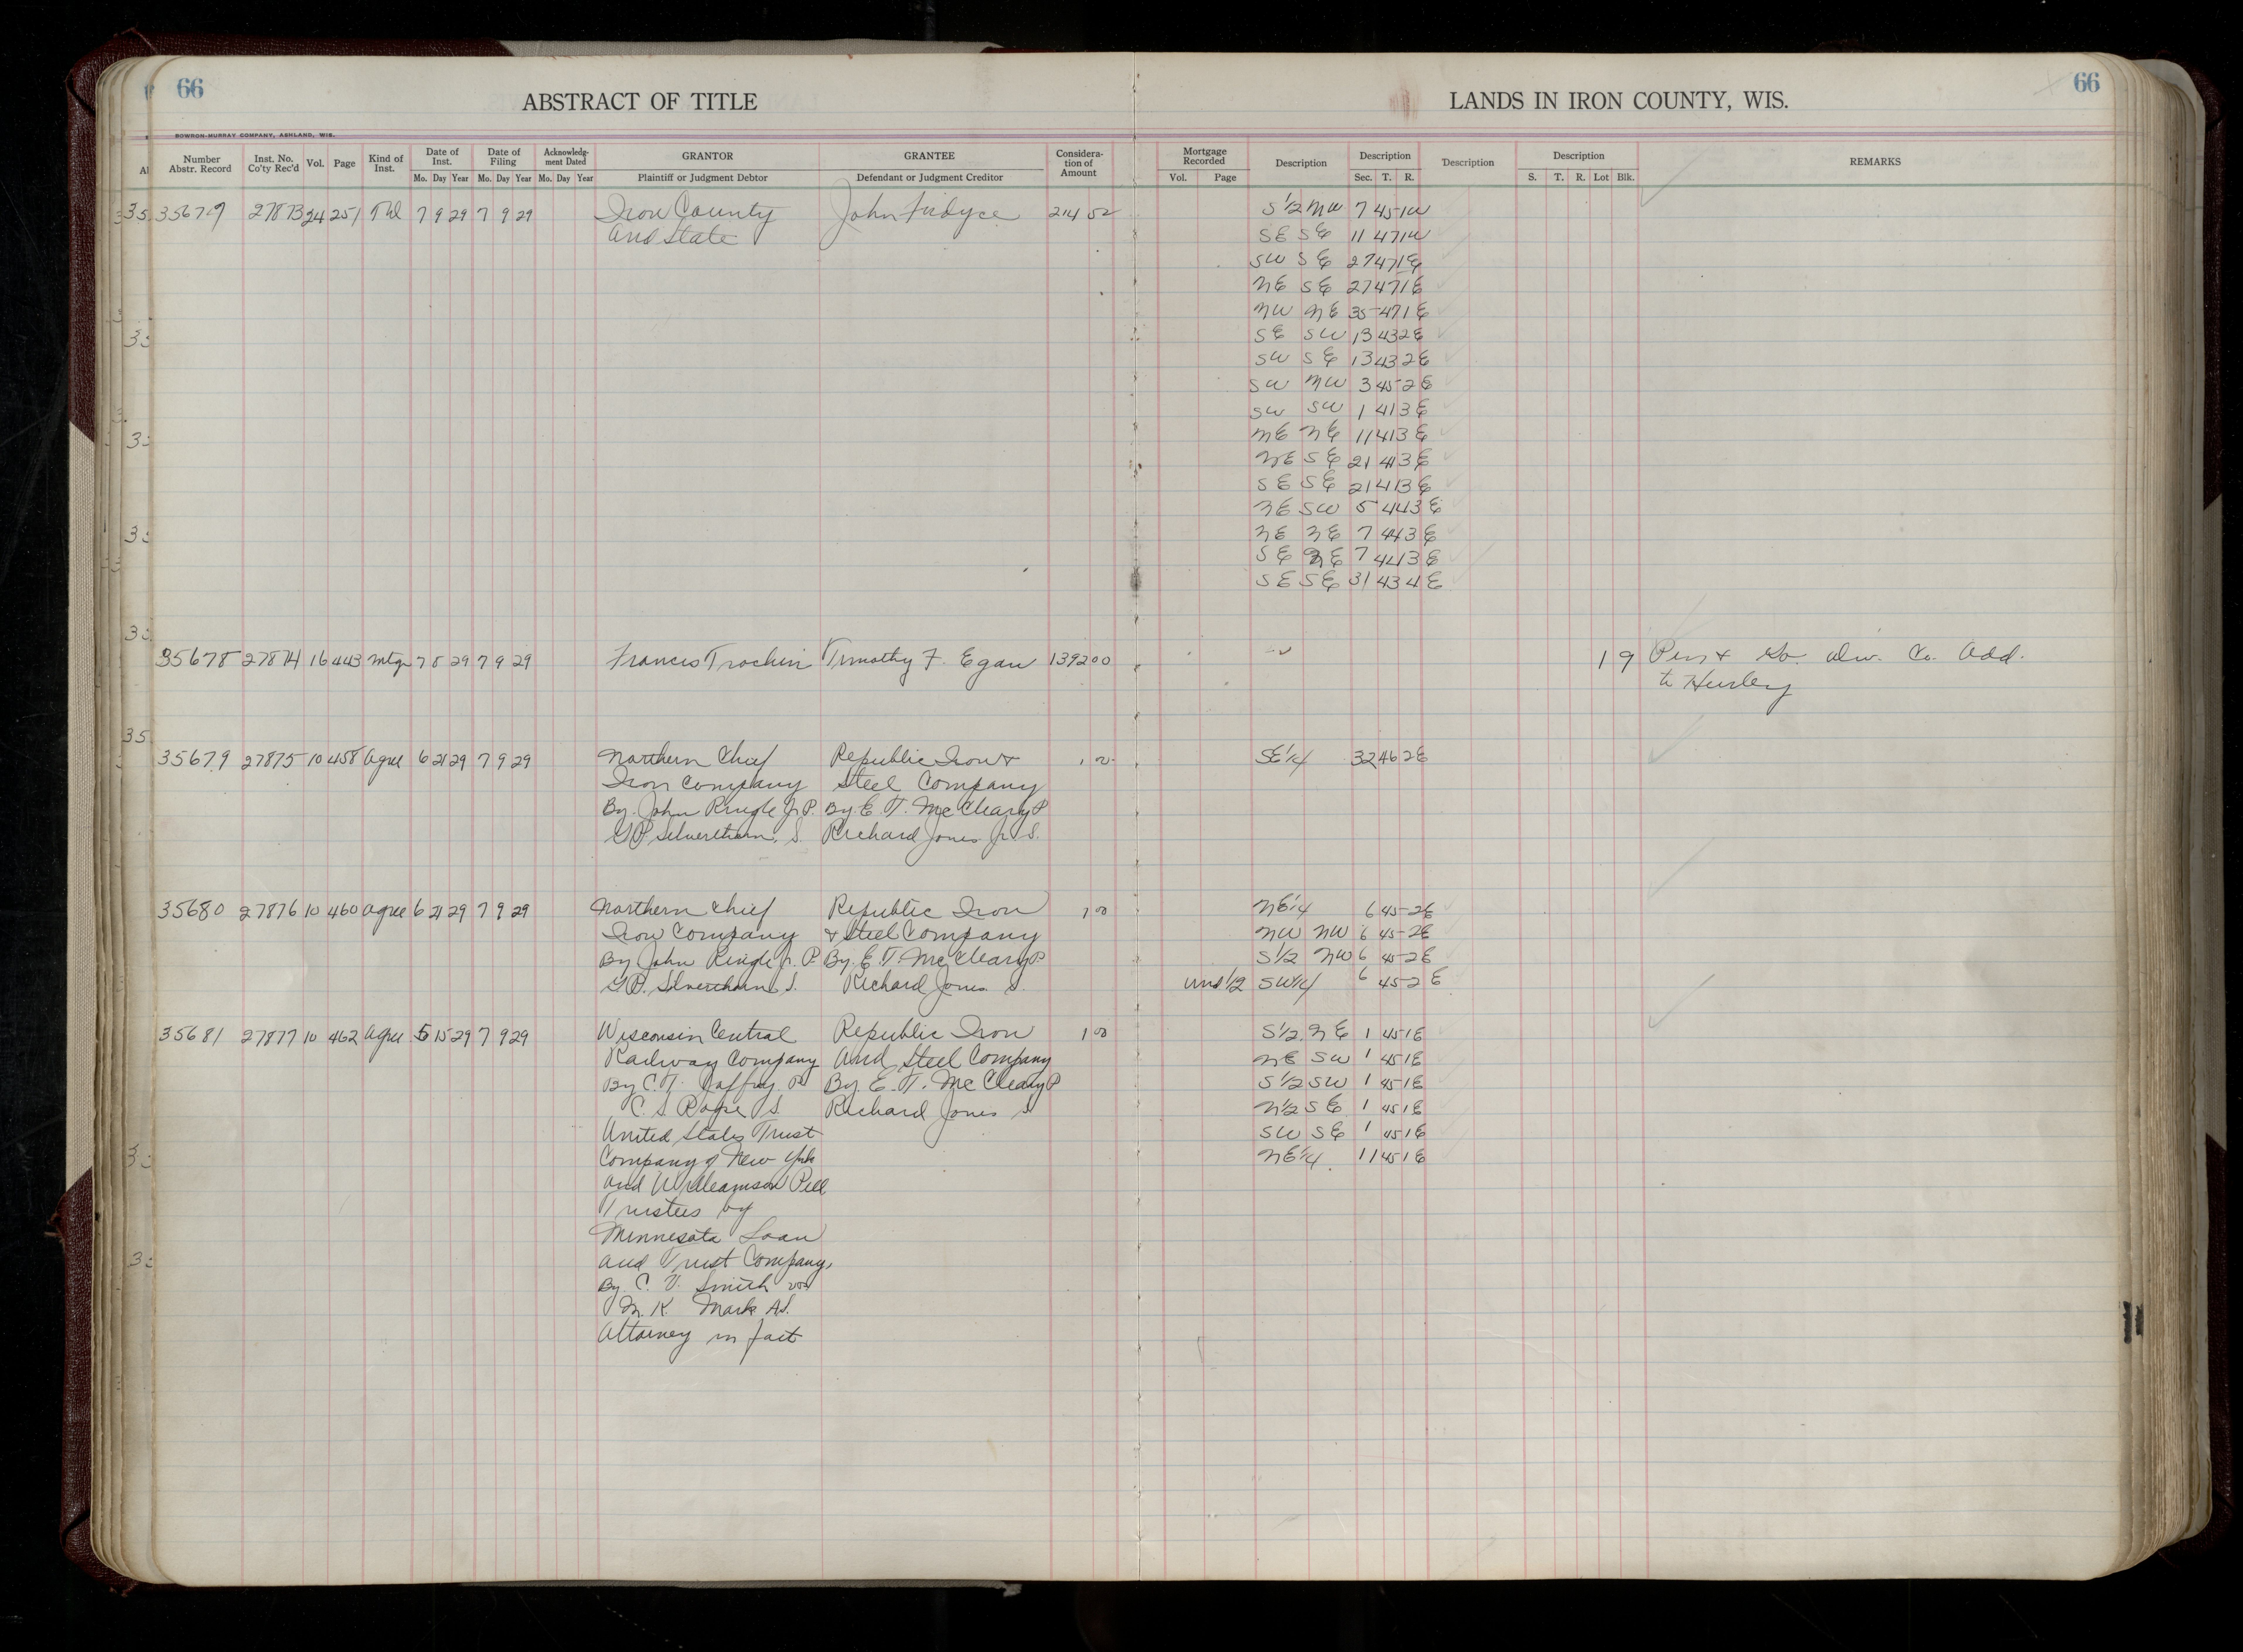 66
ABSTRACT OF TITLE
LANDS IN IRON COUNTY, WIS.
66
BOWRON-MURRAY COMPANY, ASHLAND, WIS.
Number Abstr. Record Inst. No. Co'ty Rec'd Vol. Page Kind of Inst. Date of Inst. Date of Filing Acknowledg-ment Dated GRANTOR GRANTEE Considera-tion of Amount Mortgage Recorded Description Description Description Description REMARKS
Mo. Day Year Mo. Day Year Mo. Day Year Plaintiff or Judgment Debtor Defendant or Judgment Creditor Vol. Page Sec. T. R. S. T. R. Lot Blk.
27873 24 251 7 9 29 7 9 29 Iron County John 214 52 S 1/2 NW 7 45 1W
and State SE SE 11 47 1W
SW SE 27 47 1E
NE SE 27 47 1E
NW NE 35 47 1E
SE SW 13 43 2E
SW SE 13 43 2E
SW NW 3 45 2E
SW SW 1 41 3E
NE NE 11 41 3E
NE SE 21 41 3E
SE SE 21 41 3E
NE SW 5 44 3E
NE NE 7 44 3E
SE NE 7 44 3E
SE SE 31 43 4E
35678 27874 16 443 Mtge 7 8 29 7 9 29 Francis Trochin Timothy F. Egan 1392 00 1 9 Div. Co. Add.
to Hurley
35679 27875 10 458 Agree 6 21 29 7 9 29 Northern Chief Republic Iron & SE 1/4 32 46 2E
Iron Company Steel Company
By John Ringle Jr P. By E. T. McCleary P
G P Silverthorn, S. Richard Jones Jr. S.
35680 27876 10 460 Agree 6 21 29 7 9 29 Northern Chief Republic Iron 1 00 NE 1/4 6 45 2E
Iron Company & Steel Company NW NW 6 45 2E
By John Ringle Jr. P. By E. T. McCleary P. S 1/2 NW 6 45 2E
G P. Silverthorn S. Richard Jones S. und 1/2 SW 1/4 6 45 2E
35681 27877 10 462 Agree 5 15 29 7 9 29 Wisconsin Central Republic Iron 1 00 S 1/2 NE 1 45 1E
Railway Company And Steel Company NE SW 1 45 1E
By C. T. Jaffray P By E. T. McCleary P S 1/2 SW 1 45 1E
C. S. S. Richard Jones S N 1/2 SE 1 45 1E
United States Trust SW SE 1 45 1E
Company of New York NE 1/4 11 45 1E
and Williamson Pell
Trustees by
Minnesota Loan
and Trust Company,
By C. V. Smith
M. K. Mark AS.
Attorney in fact